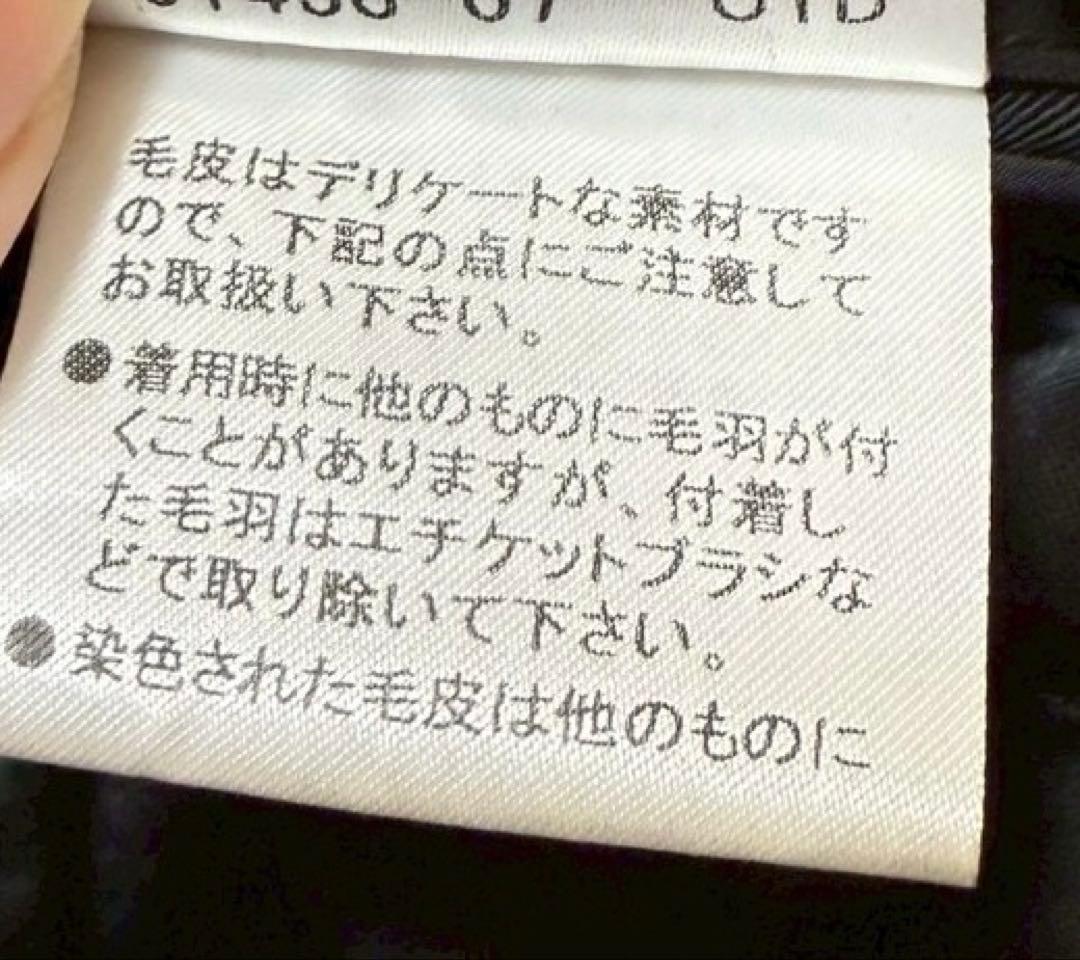 毛皮はデリケートな素材です
ので、下記の点にご注意して
お取扱い下さい。
●着用時に他のものに毛羽が付
くことがありますが、付着し
た毛羽はエチケットブラシな
どで取り除いて下さい。
●染色された毛皮は他のものに